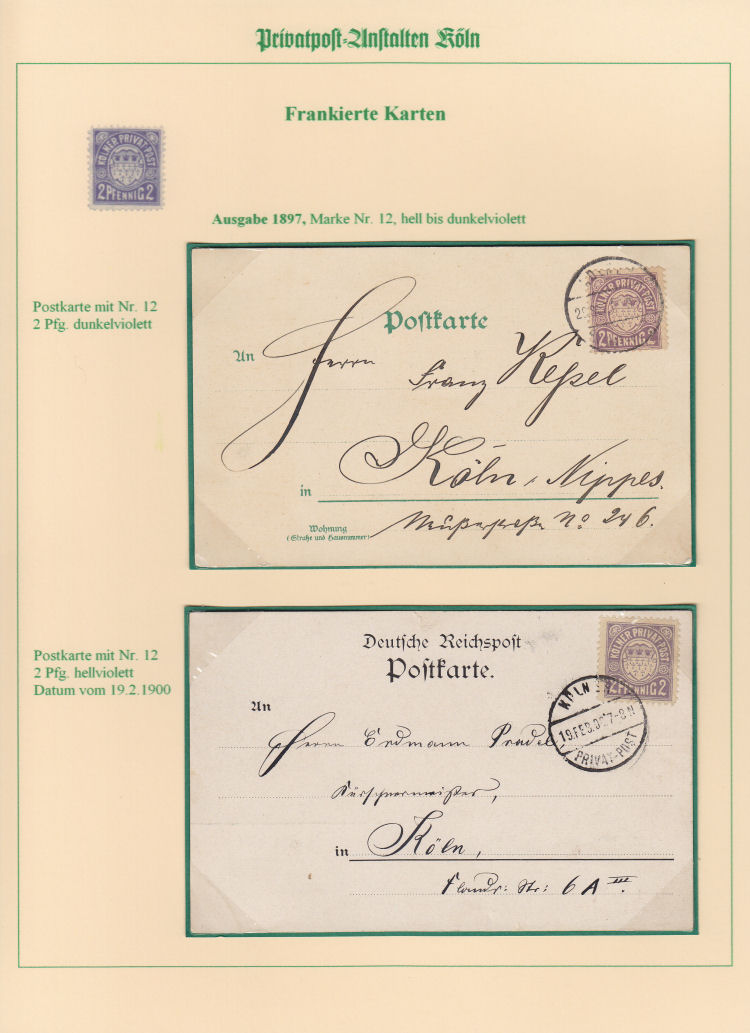 Privatpost-Anstalten Köln
Frankierte Karten
KÖLNER PRIVAT POST
2 PFENNIG 2
Ausgabe 1897, Marke Nr. 12, hell bis dunkelviolett
Postkarte mit Nr. 12
2 Pfg. dunkelviolett
KÖLNER PRIVAT POST
2 PFENNIG 2
Postkarte
An Herrn
Franz Kessel
in Köln-Nippes.
Wohnung
(Straße und Hausnummer)
No 246.
Postkarte mit Nr. 12
2 Pfg. hellviolett
Datum vom 19.2.1900
Deutsche Reichspost
Postkarte.
KÖLNER PRIVAT POST
2 PFENNIG 2
KÖLN
19.FEB.0 7-8 N
PRIVAT-POST
An
Herrn Erdmann Pradel
Kürschnermeister,
in Köln,
Flandr: Str: 6 A III.